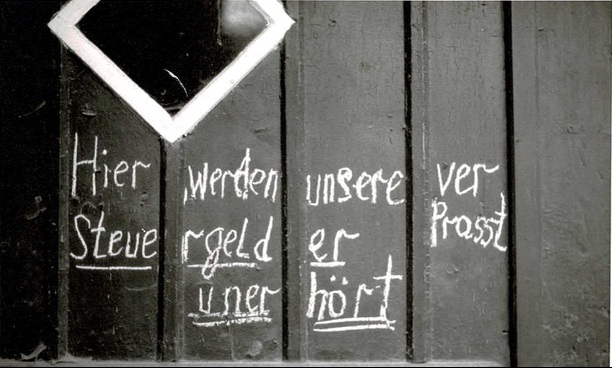 Hier werden unsere ver
Steue rgeld er Prasst
uner hört